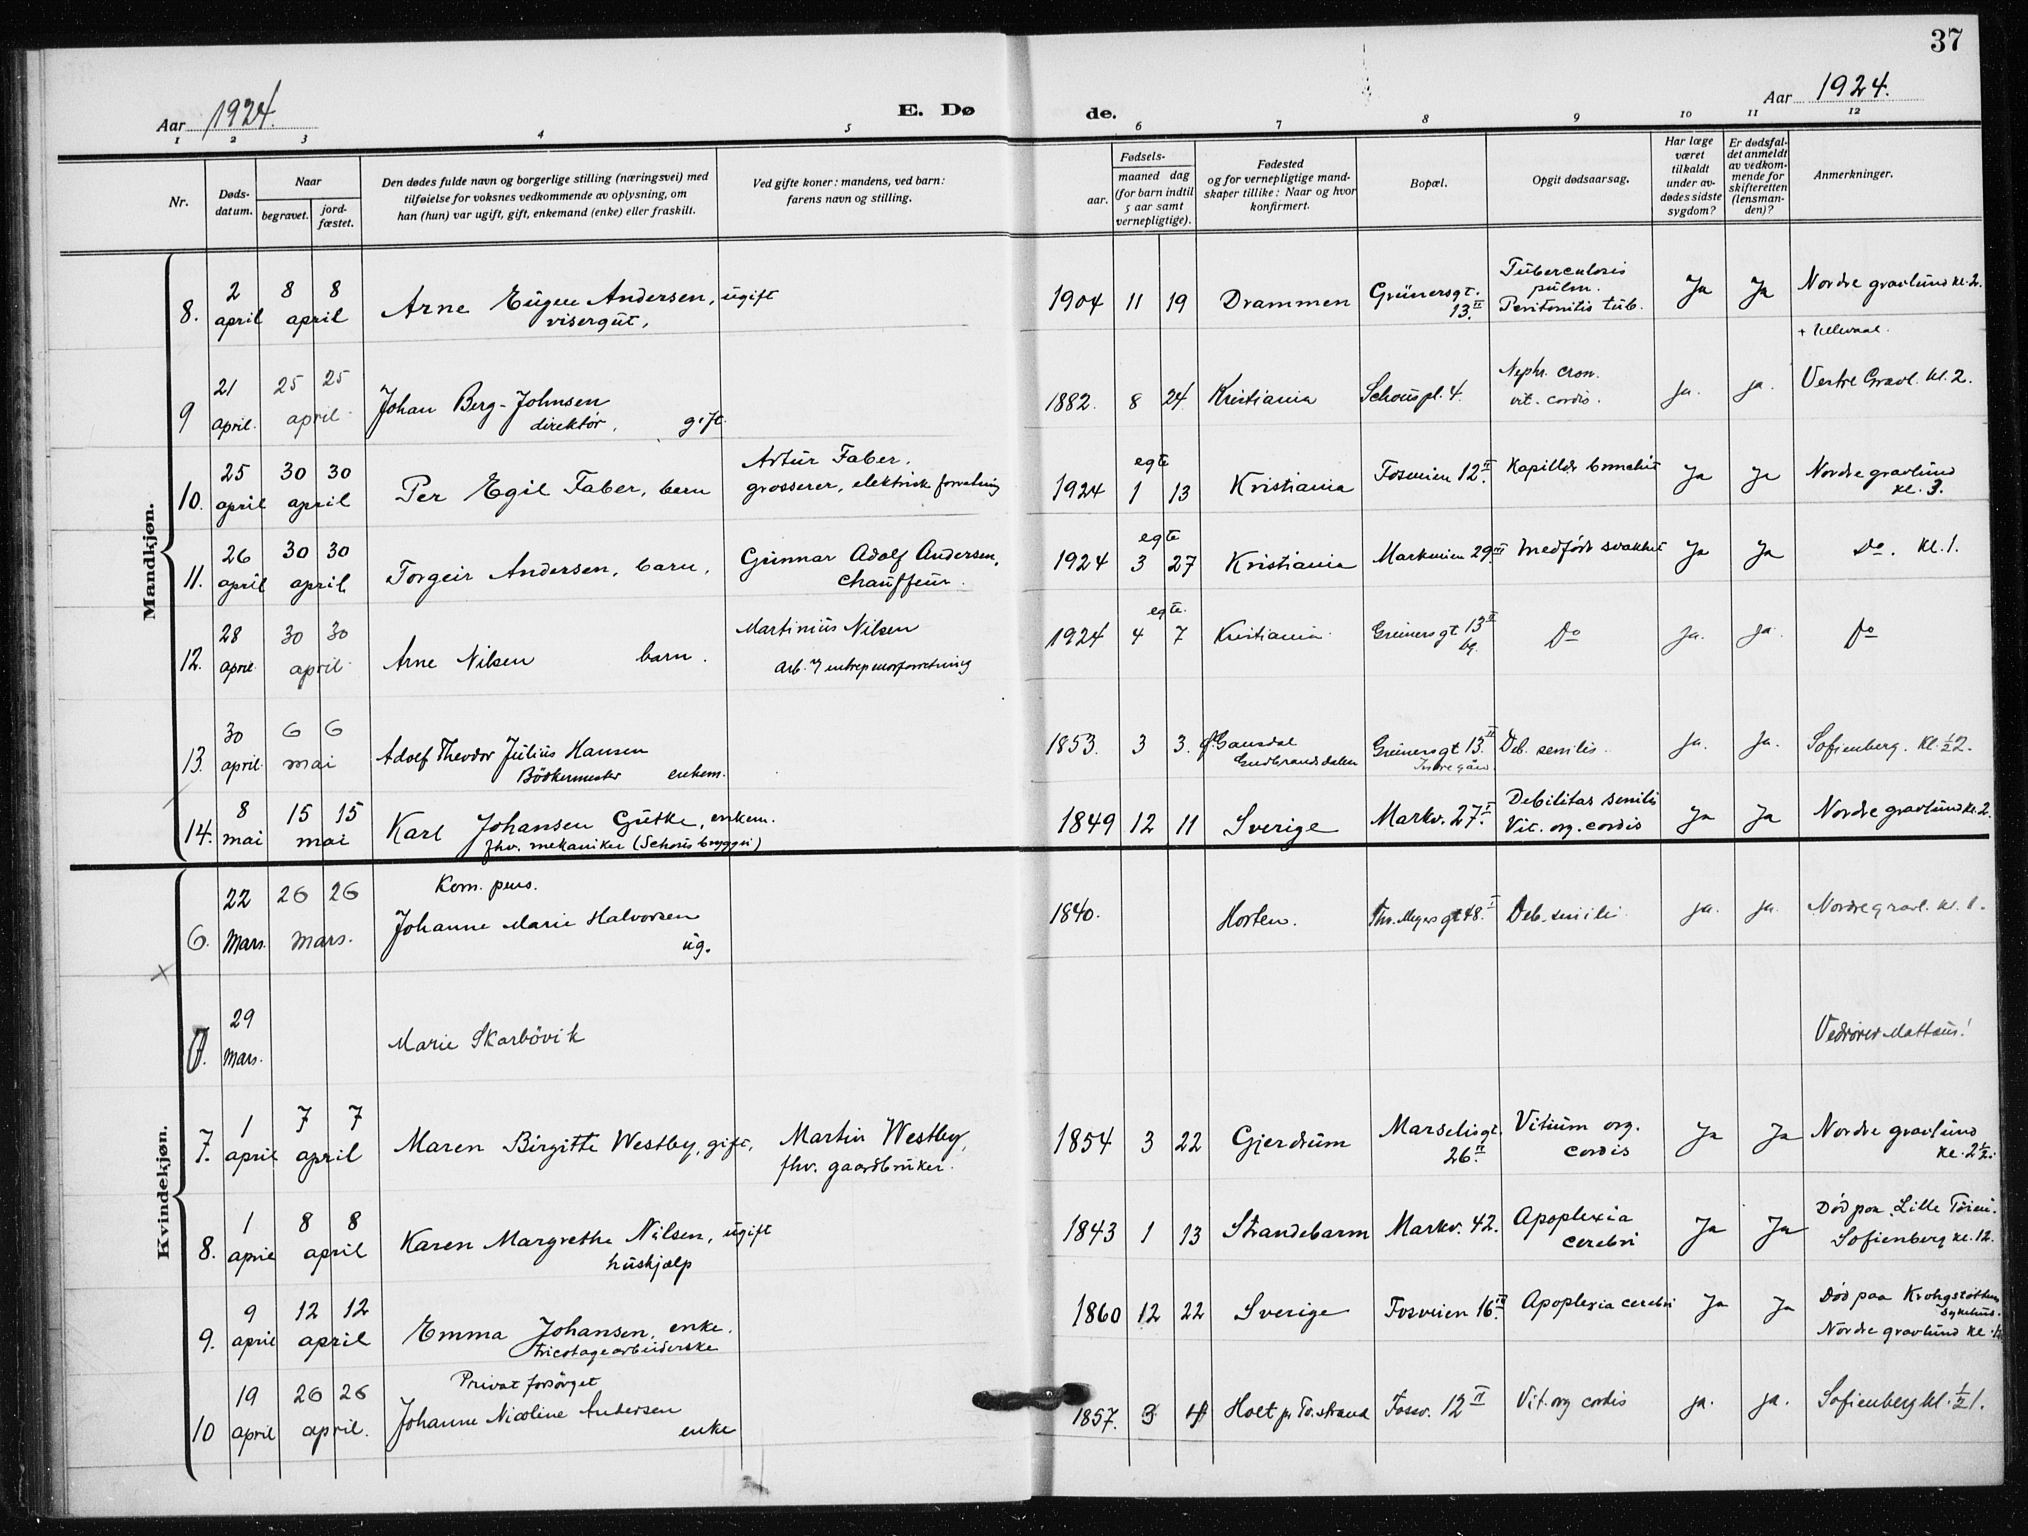 37
Aar 1924.
E. Dø de.
Aar 1924.
1 2 3 4 5 6 7 8 9 10 11 12
Nr.
Døds-datum.
Naar
begravet.
jord-fæstet.
Den dødes fulde navn og borgerlige stilling (næringsvei) med
tilføielse for voksnes vedkommende av oplysning, om
han (hun) var ugift, gift, enkemand (enke) eller fraskilt.
Ved gifte koner: mandens, ved barn:
farens navn og stilling.
Fødsels-
aar.
maaned dag
(for barn indtil
5 aar samt
vernepligtige).
Fødested
og for vernepligtige mand-
skaper tillike: Naar og hvor
konfirmert.
Bopæl.
Opgit dødsaarsag.
Har læge
været
tilkaldt
under av-
dødes sidste
sygdom?
Er dødsfal-
det anmeldt
av vedkom-
mende for
skifteretten
(lensman-
den)?
Anmerkninger.
Mandkjøn.
8. 2 april 8 8 april Arne Eugen Andersen, ugift
visergut.
1904 11 19 Drammen Grünersgt. 13 II Tuberculosis pulm. Peritonitis tub. Ja Ja Nordre gravlund kl. 2.
+ Ullevaal.
9 21 april. 25 25 april. Johan Berg-Johnsen
direktør, gift.
1882. 8 24 Kristiania Schouspl. 4. Nephr. cron. vit. cordis. ja. ja. Vestre Gravl. kl. 2.
10. 25 april 30 30 april Per Egil Faber, barn Artur Faber,
grosserer, elektrisk forretning
1924 egte 1 13 Kristiania Fosveien 12 II. Kapillær bronchit Ja Ja Nordre gravlund kl. 3.
11. 26 april 30 30 april Torgeir Andersen, barn, Gunnar Adolf Andersen,
chauffeur.
1924 egte 3 27 Kristiania Markveien 29 III Medfødt svakhet Ja Ja Do. Kl. 1.
12. 28 april 30 30 april. Arne Nilsen barn. Martinius Nilsen
arb. i entreprenørforretning
1924 egte. 4 7 Kristiania. Grünersgt 13 II bg. Do ja. ja. Do
13. 30 april. 6 6 mai Adolf Theodor Julius Hansen
Bödkermester enkem.
1853. 3 3. Gausdal Gudbrandsdalen Grünersgt 13. II Indre gård. Deb. senilis. ja. ja. Sofienberg. Kl. ½ 2.
14. 8 mai 15 15 mai Karl Johansen Gutke, enkem.
fhv. mekaniker (Schous bryggeri)
1849 12 11 Sverige Markv. 27 I. Debilitas senilis Vit. org. cordis Ja Ja Nordre gravlund kl. 2.
Kvindekjøn.
6. 22 Mars. 26 26 mars. Kom. pens.
Johanne Marie Halvorsen
ug.
1840. Horten. Thv. Meyers gt 48. I Deb. senilis ja. ja. Nordre gravl. kl. 1.
x
7. 29 Mars. Marie Skarbövik Vedrører Mattæus!
7. 1 april 7 7 april Maren Birgitte Westby, gift, Martin Westby,
fhv. gaardbruker.
1854 3 22 Gjerdrum Marselisgt. 26 II. Vitium org. cordis Ja Ja Nordre gravlund kl. 2½.
8. 1 april 8 8 april Karen Margrethe Nilsen, ugift
hushjælp
1843 1 13 Strandebarm Markv. 42. Apoplexia cerebri Ja Ja Død paa Lille Tøien. Sofienberg kl. 12.
9. 9 april 12 12 april Emma Johansen, enke.
tricotagearbeiderske
1860 12 22 Sverige Fosveien 16 Apoplexia cerebri Ja Ja Død paa Krohgstøttens sykehus. Nordre gravlund kl.
10 19 april 26 26 april. Privat forsörget
Johanne Nicoline Andersen
enke
1857. 3 4 Holt pr Tv.strand Fosv. 12 II Vit. org cordis ja. ja. Sofienberg kl. ½ 1.